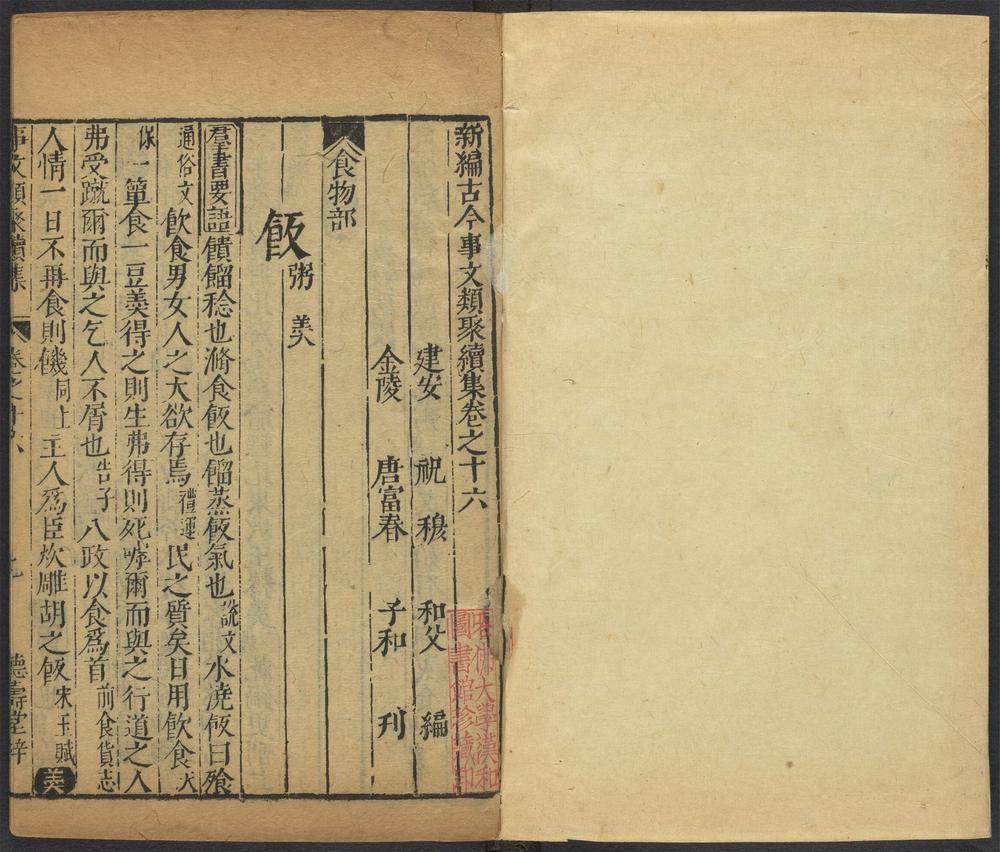 新編古今事文類聚續集卷之十六
建安 祝 穆 和父 編
金陵 唐富春 子和 刊
食物部
飯 粥 羹
羣書要語饙餾稔也滫食飯也餾蒸飯氣也説文水澆飯曰飱
通俗文飲食男女人之大欲存焉禮運民之質矣日用飲食天
保一簞食一豆羹得之則生弗得則死嘑爾而與之行道之人
弗受蹴爾而與之乞人不屑也告子八政以食爲首前食貨志
人情一日不再食則饑同上主人爲臣炊雕胡之飯宋玉賦 羹
事文類聚續集 卷之十六 一 德壽堂梓
哈佛大學漢和
圖書館珍藏印